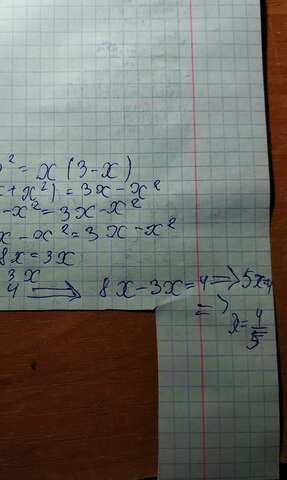 )² = x (3-x)
x + x²) = 3x - x²
- x² = 3x - x²
x - x² = 3x - x²
8x = 3x
3x
4 ⟹ 8x - 3x = 4 => 5x=4
=> x = 4/5